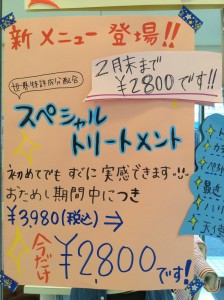 新メニュー登場!!
2月末まで
¥2800です!!
世界特許成分配合
スペシャル
トリートメント
初めてでも すぐに実感できます..!!
おためし期間中につき
¥3,980(税込)→
今だけ
¥2,800です!